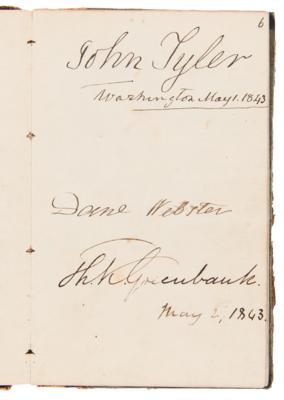 6
John Tyler
Washington May 1. 1843
Danl Webster
Th. K. Greenbank.
May 2, 1843.